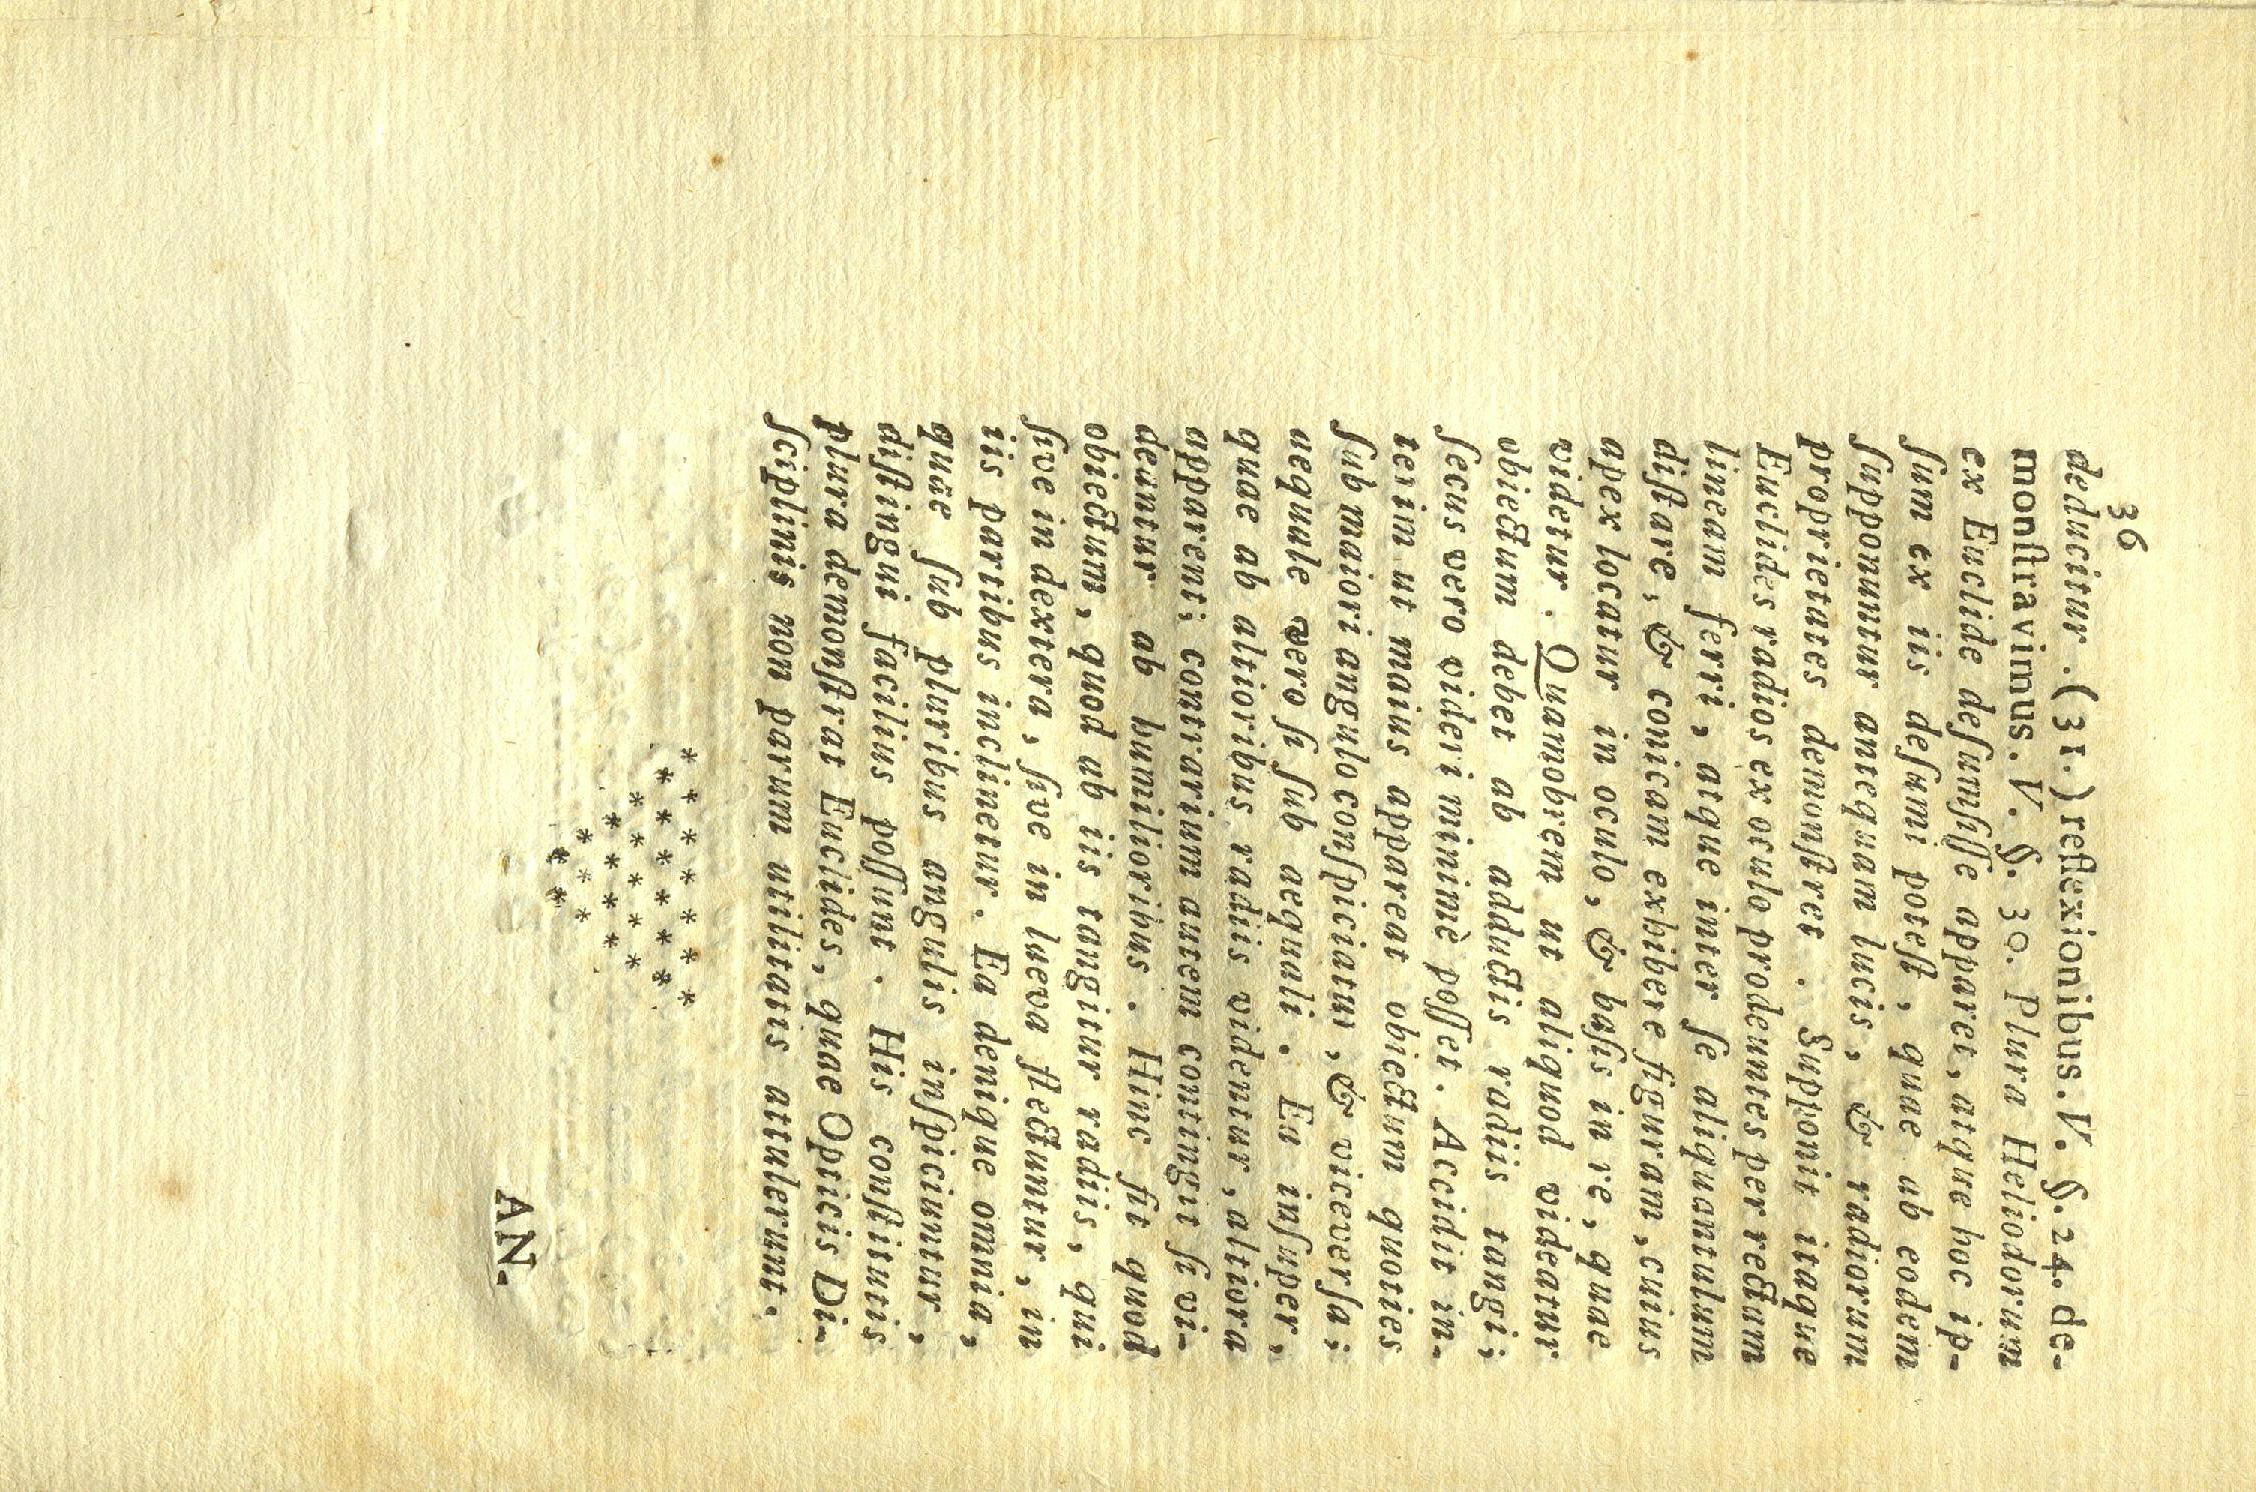 36
deducitur . (31.) reflexionibus. V. §. 24. de-
monſtravimus. V. §. 30. Plura Heliodorum
ex Euclide deſumſiſſe apparet, atque hoc ip-
ſum ex iis deſumi poteſt , quae ab eodem
ſupponuntur antequam lucis, & radiorum
proprietates demonſtret . Supponit itaque
Euclides radios ex oculo prodeuntes per rectum
lineam ferri , atque inter ſe aliquantulum
diſtare, & conicam exhibere figuram , cuius
apex locatur in oculo, & baſis in re, quae
videtur . Quamobrem ut aliquod videatur
obiectum debet ab adductis radiis tangi;
ſecus vero videri minimè poſſet. Accidit in-
terim ut maius appareat obiectum quoties
ſub maiori angulo conſpiciatur , & viceverſa;
aequale vero ſi ſub aequali . Ea inſuper,
quae ab altioribus radiis videntur , altiora
apparent; contrarium autem contingit ſi vi-
deantur ab humilioribus . Hinc fit quod
obiectum, quod ab iis tangitur radiis, qui
ſive in dextera, ſive in laeva flectuntur, in
iis partibus inclinetur. Ea denique omnia,
quae ſub pluribus angulis inſpiciuntur,
diſtingui facilius poſſunt . His conſtitutis
plura demonſtrat Euclides, quae Opticis Di-
ſciplinis non parum utilitatis attulerunt.
* * * * * * *
* * * * * *
* * * * *
* * * *
* * *
* *
AN-